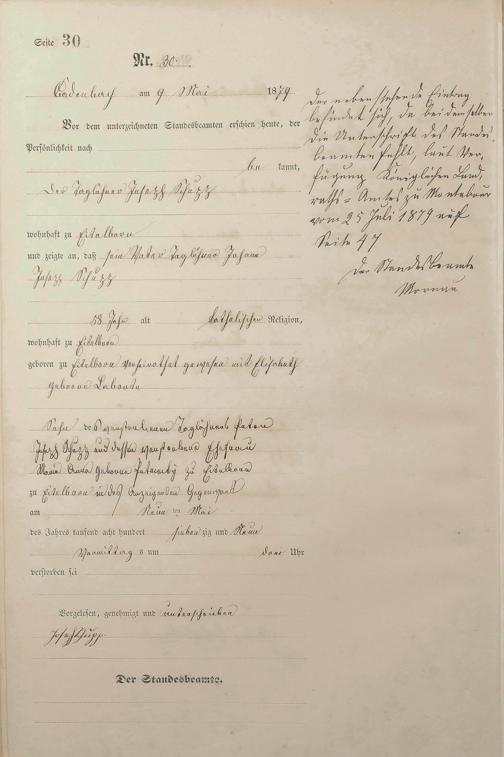 Seite 30
Nr. 30
Cadenbach am 9 Mai 1879
Vor dem unterzeichneten Standesbeamten erschien heute, der
Persönlichkeit nach
be kannt,
der Taglöhner Joseph Schupp
wohnhaft zu Eitelborn
und zeigte an, daß sein Vater Taglöhner Johann
Joseph Schupp
58 Jahr alt katholischer Religion,
wohnhaft zu Eitelborn
geboren zu Eitelborn verheirathet gewesen mit Elisabeth
geborene
Sohn des verstorbenen Taglöhners Peter
Joseph Schupp und dessen verstorbene Ehefrau
Maria Anna geborene zu Eitelborn
zu Eitelborn in des Anzeigenden Gegenwart
am Neun ten Mai
des Jahres tausend acht hundert sieben zig und Neun
Vormittag s um drei Uhr
verstorben sei
Vorgelesen, genehmigt und unterschrieben
Joseph Schupp
Der Standesbeamte.
Der nebenstehende Eintrag
befindet sich, da bei demselben
die Unterschrift des Standes
beamten fehlt, laut Ver,
fügung Königlichen Land,
raths=Amtes zu Montabaur
vom 25 Juli 1879 auf
Seite 47
Der Standesbeamte